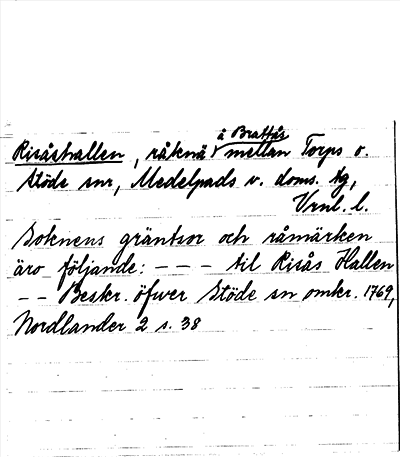 Risåshallen, råknä å Brattås mellan Torps o.
Stöde snr, Medelpads v. doms. tg,
Vrnl. l.
Soknens gräntsor och råmärken
äro följande: - - - til Risås Hallen
- - Beskr. öfwer Stöde sn omkr. 1769,
Nordlander 2 s. 38